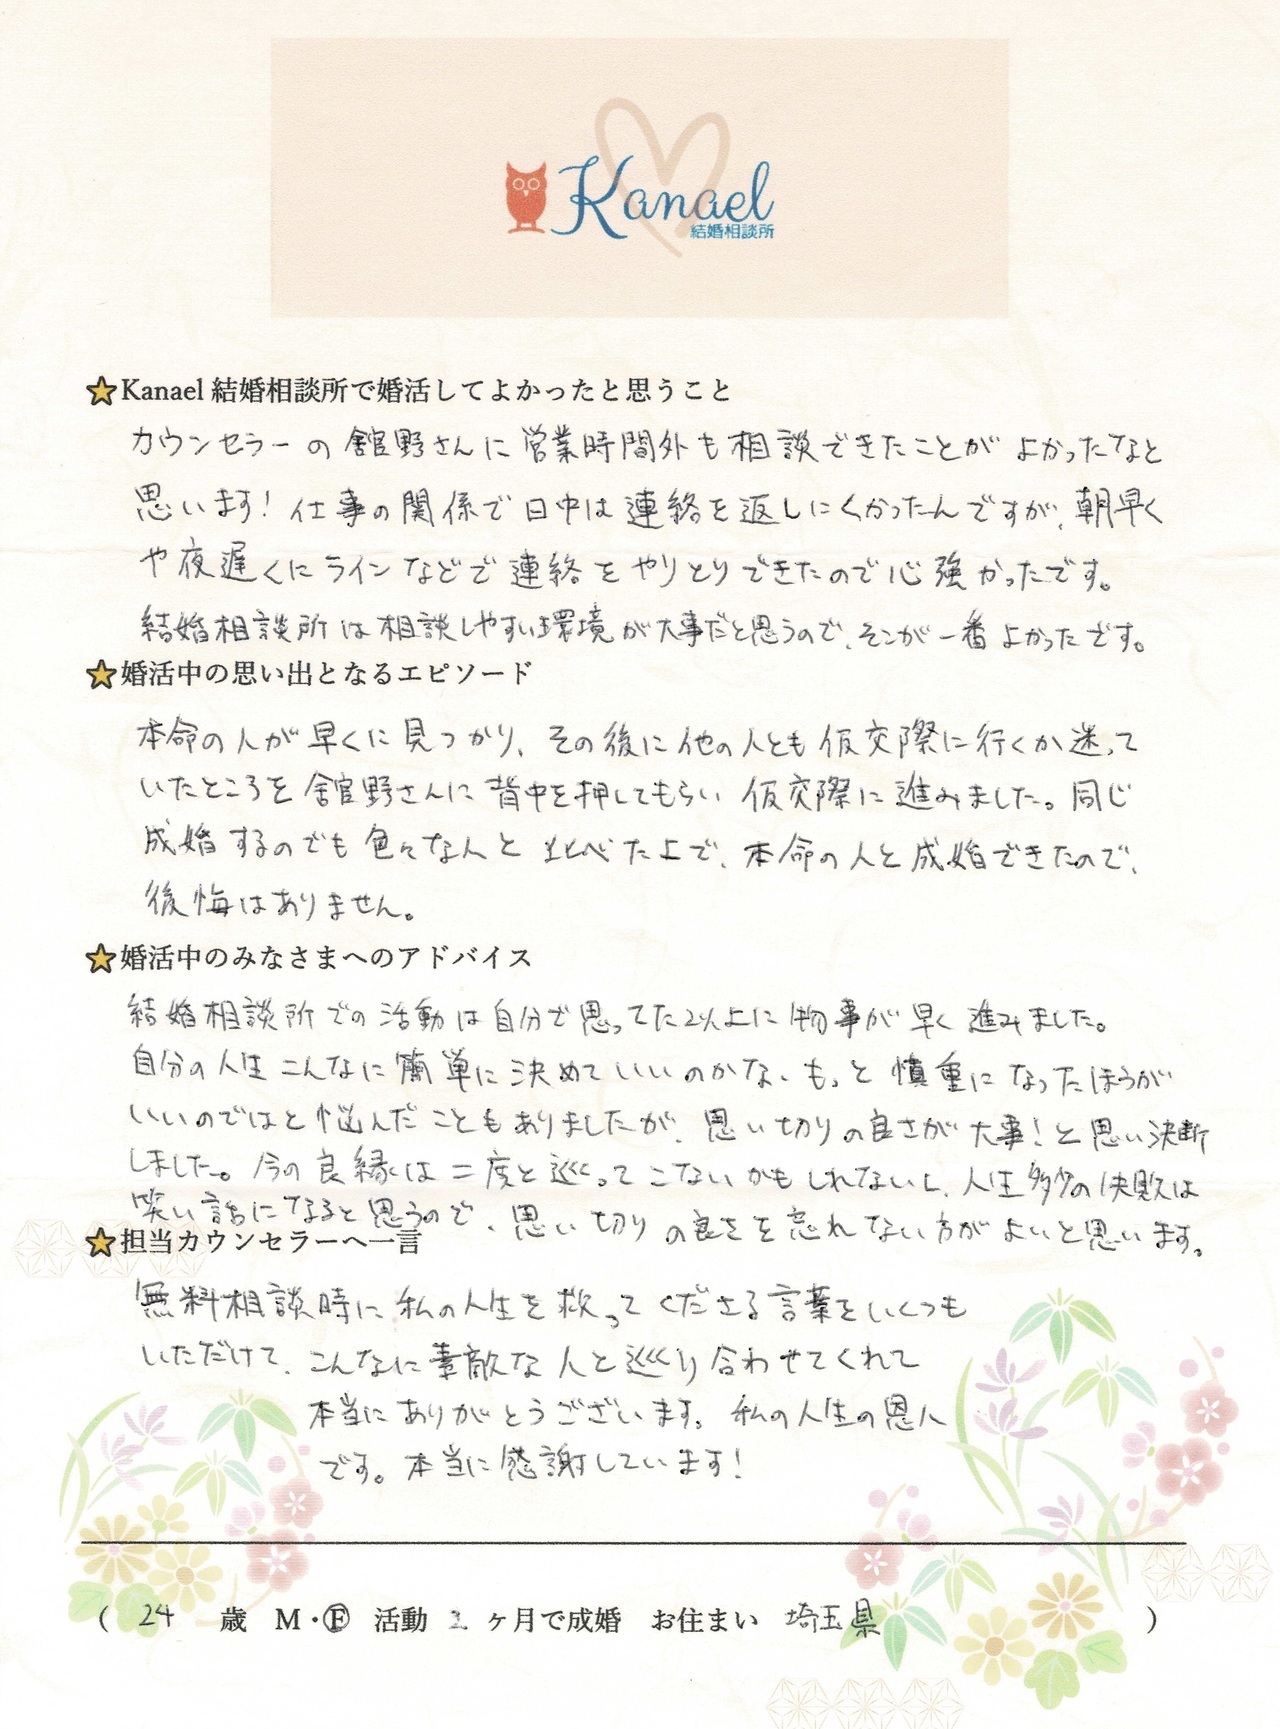 Kanael
結婚相談所
Kanael 結婚相談所で婚活してよかったと思うこと
カウンセラーの舘野さんに営業時間外も相談できたことがよかったなと
思います！仕事の関係で日中は連絡を返しにくかったんですが、朝早く
や夜遅くにラインなどで連絡をやりとりできたので心強かったです。
結婚相談所は相談しやすい環境が大事だと思うので、そこが一番よかったです。
婚活中の思い出となるエピソード
本命の人が早くに見つかり、その後に他の人とも仮交際に行くか迷って
いたところを舘野さんに背中を押してもらい仮交際に進みました。同じ
成婚するのでも色々な人と比べた上で、本命の人と成婚できたので、
後悔はありません。
婚活中のみなさまへのアドバイス
結婚相談所での活動は自分で思ってた以上に物事が早く進みました。
自分の人生こんなに簡単に決めていいのかな、もっと慎重になったほうが
いいのではと悩んだこともありましたが、思い切りの良さが大事！と思い決断
しました。今の良縁は二度と巡ってこないかもしれないし、人生多少の失敗は
笑い話になると思うので、思い切りの良さを忘れない方がよいと思います。
担当カウンセラーへ一言
無料相談時に私の人生を救ってくださる言葉をいくつも
いただけて、こんなに素敵な人と巡り合わせてくれて
本当にありがとうございます。私の人生の恩人
です。本当に感謝しています！
( 24 歳 M・Ⓕ 活動 ヶ月で成婚 お住まい 埼玉県 )